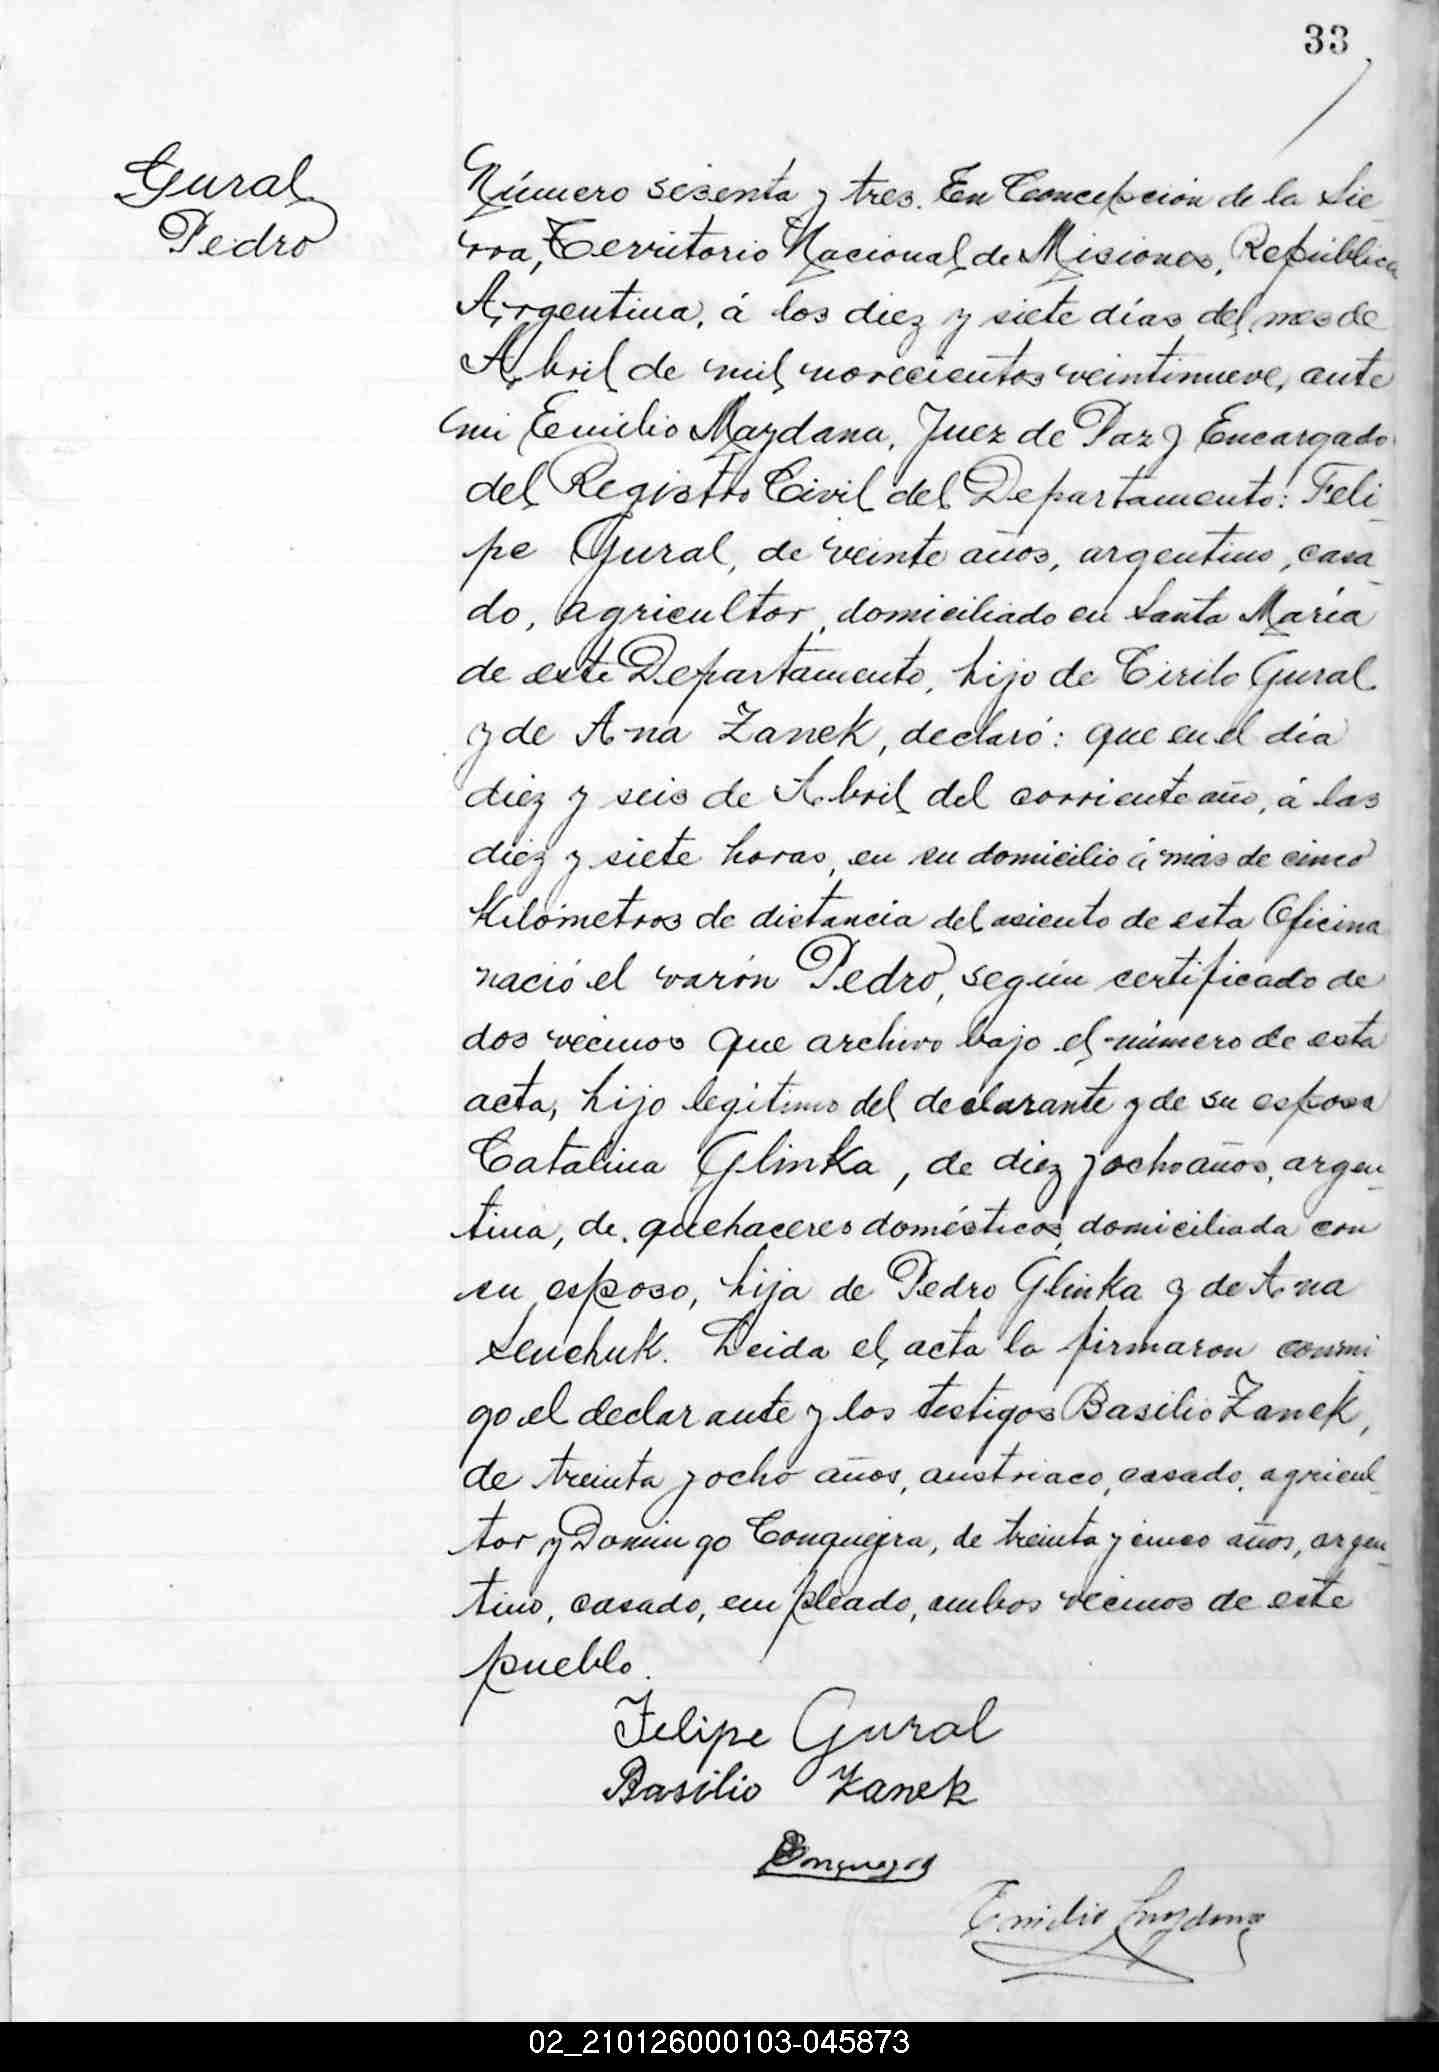 33
Gural
Pedro
Número sesenta y tres. En Concepción de la Sie-
rra, Territorio Nacional de Misiones, República
Argentina, á los diez y siete días del mes de
Abril de mil novecientos veintinueve, ante
mi Emilio Maydana, Juez de Paz y Encargado
del Registro Civil del Departamento: Feli-
pe Gural, de veinte años, argentino, casa-
do, agricultor, domiciliado en Santa María
de este Departamento, hijo de Cirilo Gural
y de Ana Zanek, declaró: que en el día
diez y seis de Abril del corriente año, á las
diez y siete horas, en su domicilio á más de cinco
Kilómetros de distancia del asiento de esta Oficina
nació el varón Pedro, según certificado de
dos vecinos que archivo bajo el número de esta
acta, hijo legítimo del declarante y de su esposa
Catalina Glinka, de diez y ocho años, argen-
tina, de quehaceres domésticos, domiciliada con
su esposo, hija de Pedro Glinka y de Ana
Senchuk. Leida el acta la firmaron conmi-
go el declarante y los testigos Basilio Zanek,
de treinta y ocho años, austriaco, casado, agricul-
tor y Domingo Conqueyra, de treinta y cinco años, argen-
tino, casado, empleado, ambos vecinos de este
pueblo.
Felipe Gural
Basilio Zanek
Emilio Maydana
02_210126000103-045873